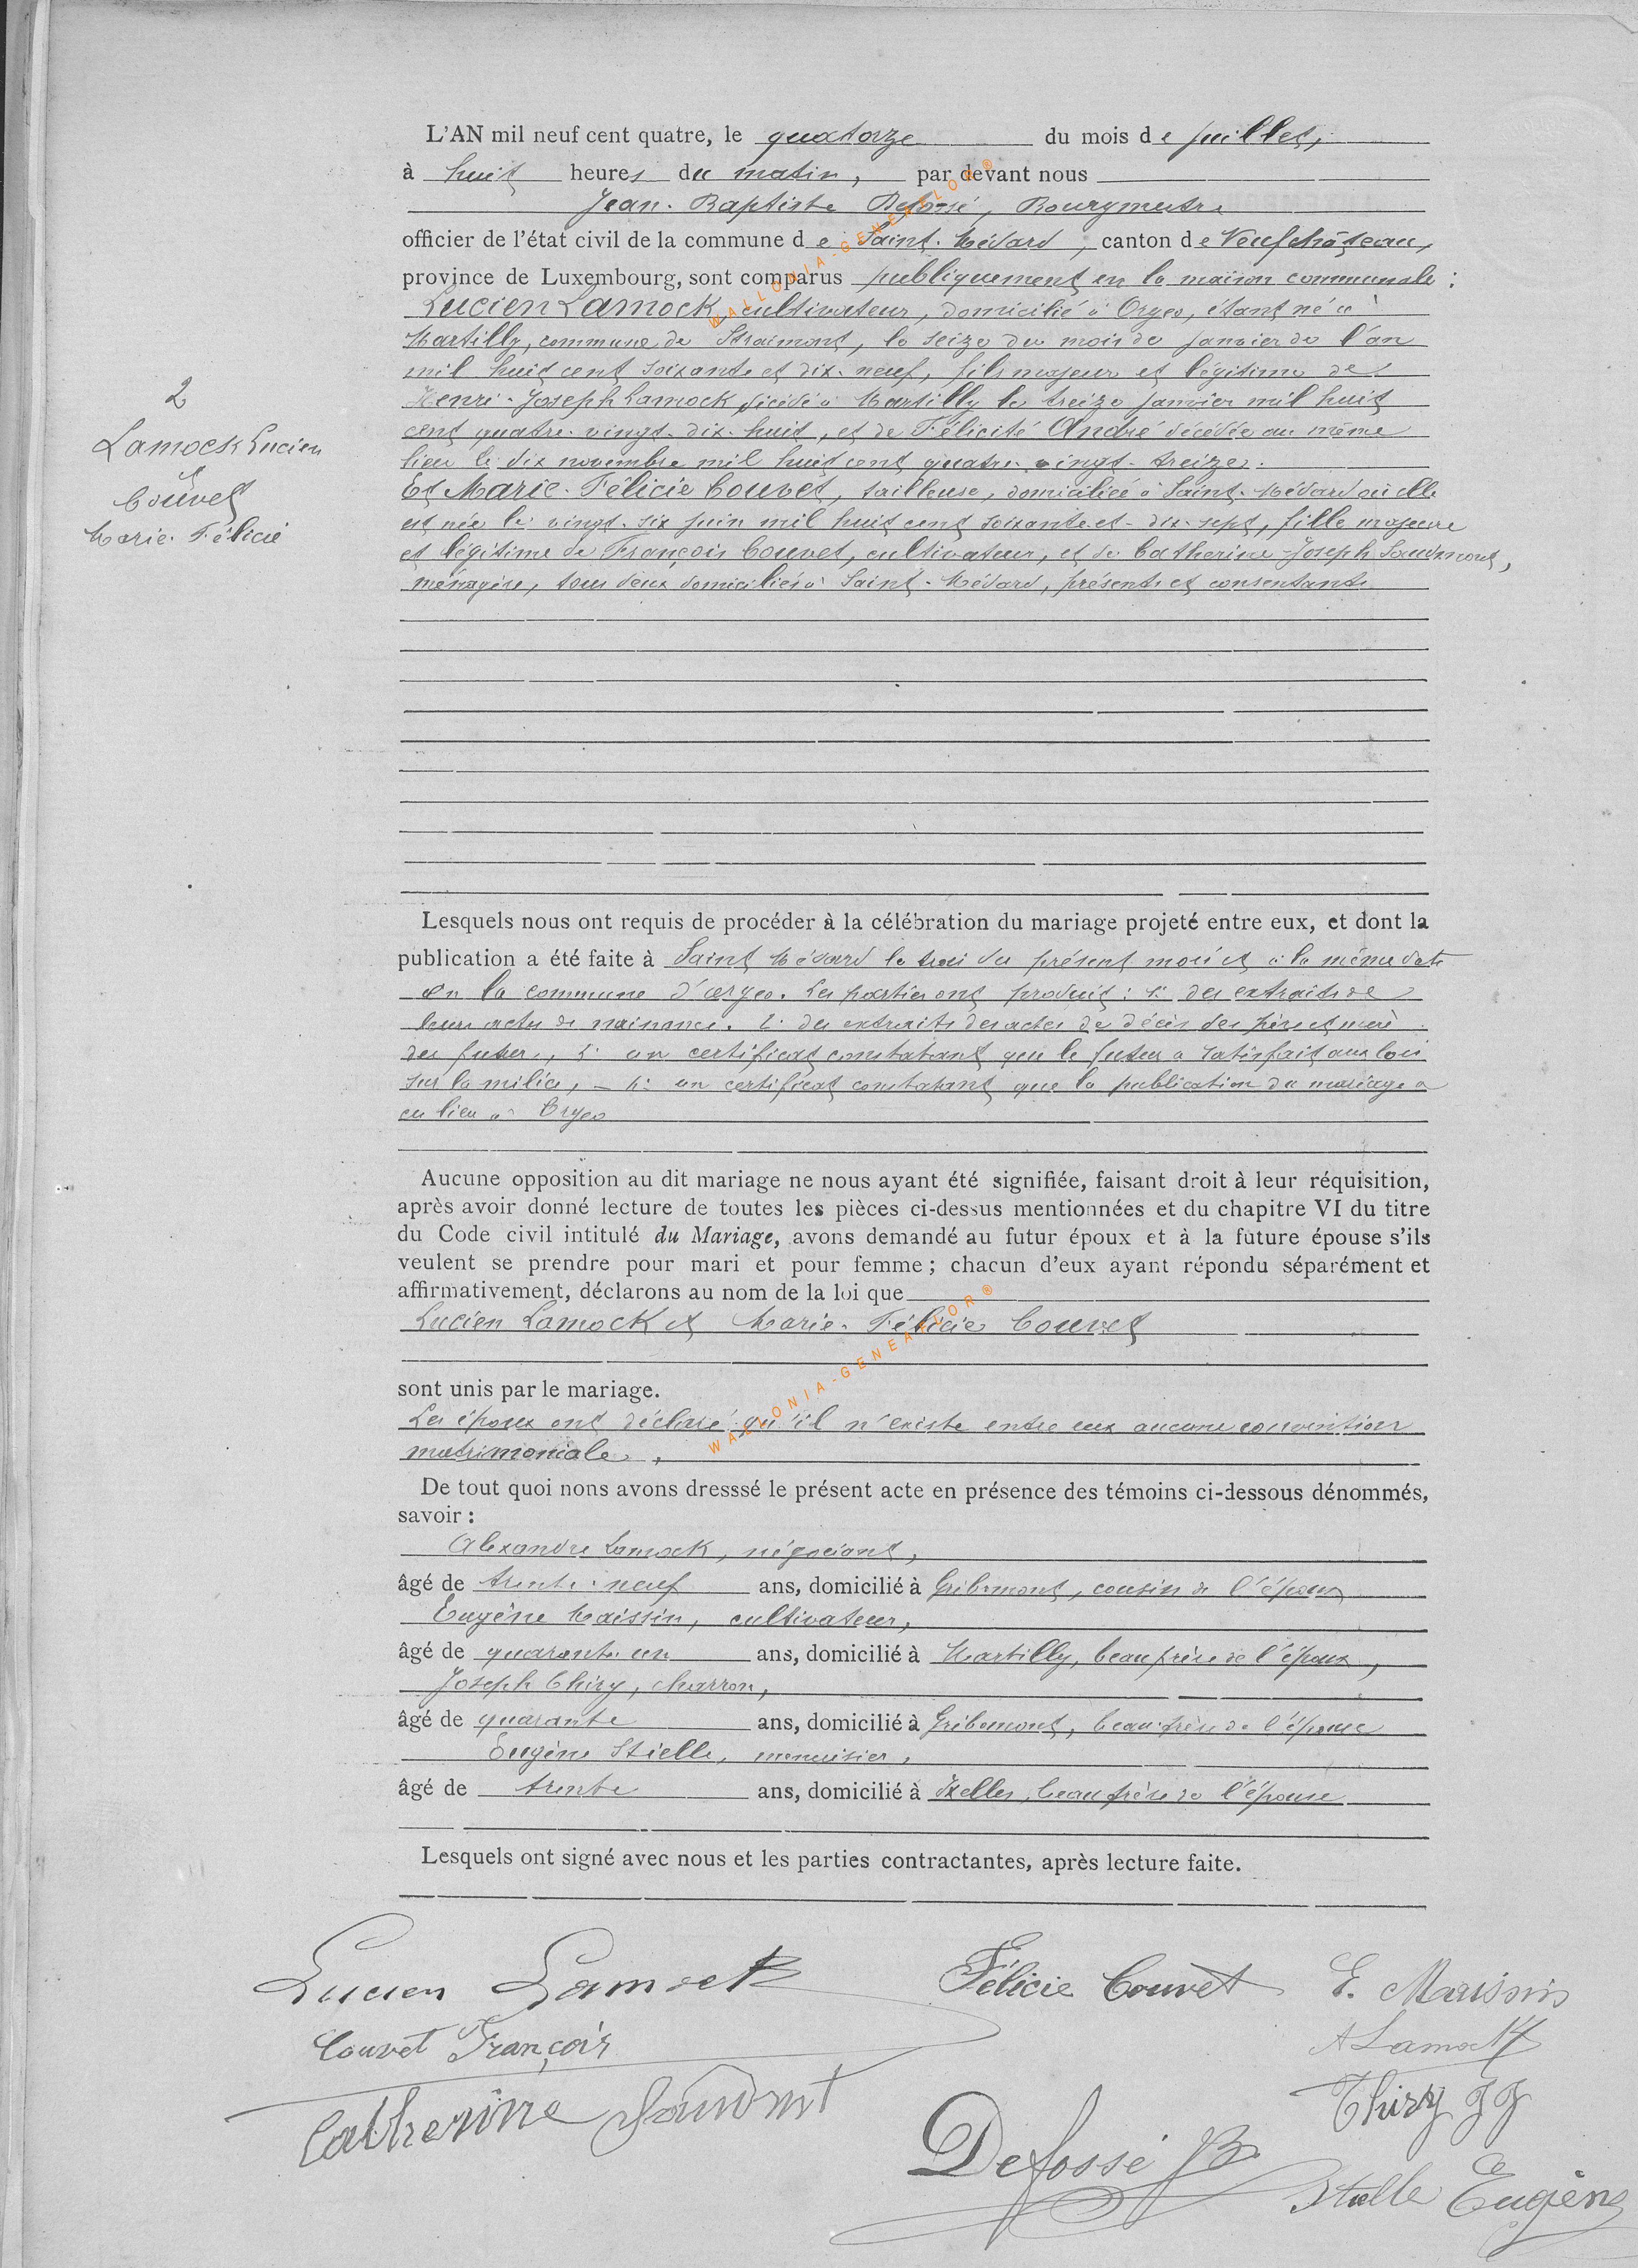 L'AN mil neuf cent quatre, le quatorze du mois de juillet,
à huit heures du matin, par devant nous
Jean-Baptiste Defossé, Bourgmestre
officier de l'état civil de la commune de Saint-Médard, canton de Neufchâteau,
province de Luxembourg, sont comparus publiquement en la maison communale :
Lucien Lamock, cultivateur, domicilié à Orgeo, étant né à
Martilly, commune de Straimont, le seize du mois de janvier de l'an
mil huit cent soixante et dix-neuf, fils majeur et légitime de
Henri-Joseph Lamock décédé à Martilly le treize janvier mil huit
cent quatre-vingt-dix-huit, et de Félicité André décédée au même
lieu le dix novembre mil huit cent quatre-vingt-treize.
Et Marie-Félicie Couvet, tailleuse, domiciliée à Saint-Médard où elle
est née le vingt-six juin mil huit cent soixante-et-dix-sept, fille majeure
et légitime de François Couvet, cultivateur, et de Catherine-Joseph Saudmont,
ménagère, tous deux domiciliés à Saint-Médard, présents et consentants
2
Lamock Lucien
et
Couvet
Marie-Félicie
Lesquels nous ont requis de procéder à la célébration du mariage projeté entre eux, et dont la
publication a été faite à Saint Médard le trois du présent mois et à la même date
en la commune d'Orgeo. Les parties ont produit : 1° des extraits de
leurs actes de naissance. 2° des extraits des actes de décès des père et mère
du futur, 3° un certificat constatant que le futur a satisfait aux lois
sur la milice, - 4° un certificat constatant que la publication du mariage a
eu lieu à Orgeo
Aucune opposition au dit mariage ne nous ayant été signifiée, faisant droit à leur réquisition,
après avoir donné lecture de toutes les pièces ci-dessus mentionnées et du chapitre VI du titre
du Code civil intitulé du Mariage, avons demandé au futur époux et à la future épouse s'ils
veulent se prendre pour mari et pour femme ; chacun d'eux ayant répondu séparément et
affirmativement, déclarons au nom de la loi que
Lucien Lamock et Marie-Félicie Couvet
sont unis par le mariage.
Les époux ont déclaré qu'il n'existe entre eux aucune convention
matrimoniale.
De tout quoi nons avons dresssé le présent acte en présence des témoins ci-dessous dénommés,
savoir :
Alexandre Lamock, négociant,
âgé de trente-neuf ans, domicilié à Gribomont, cousin de l'époux
Eugène Maissin, cultivateur,
âgé de quarante un ans, domicilié à Martilly, beau frère de l'époux,
Joseph Thiry, charron,
âgé de quarante ans, domicilié à Gribomont, beau-frère de l'épouse
Eugène Stielle, menuisier,
âgé de trente ans, domicilié à Ixelles, beau frère de l'épouse
Lesquels ont signé avec nous et les parties contractantes, après lecture faite.
Lucien Lamock Félicie Couvet E. Maissin
Couvet François A Lamock
Catherine Thiry JJ
Defossé JB
Stielle Eugène
WALLONIA-GENEALOR ®
WALLONIA-GENEALOR ®